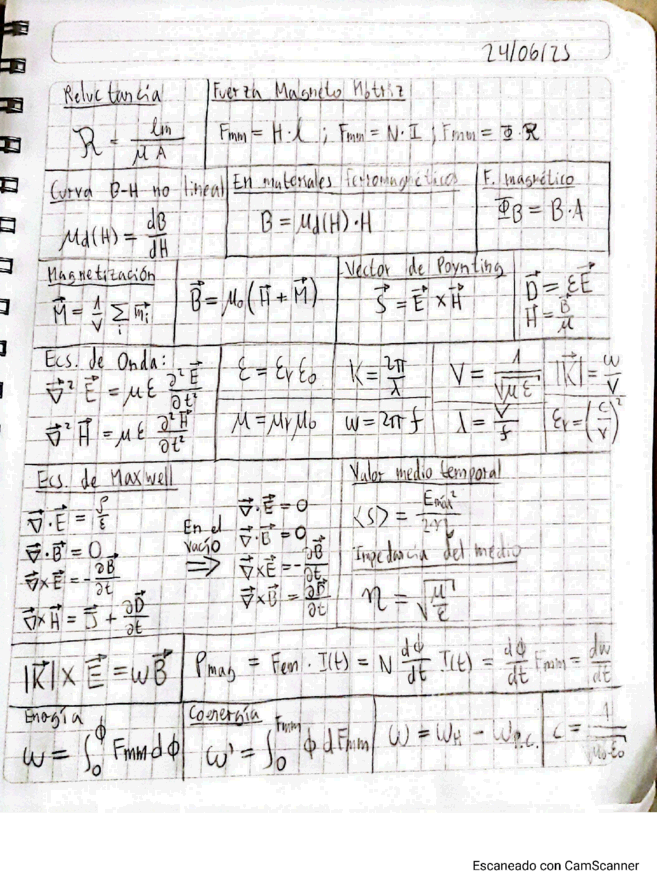 24/06/25
Reluctancia
R = lm / μA
Fuerza Magneto Motriz
Fmm = H·l ; Fmm = N·I ; Fmm = Φ·R
Curva B-H no lineal
μd(H) = dB/dH
En materiales ferromagnéticos
B = μd(H)·H
F. magnético
ΦB = B·A
Magnetización
M⃗ = 1/V Σi m⃗i
B⃗ = μ₀(H⃗ + M⃗)
Vector de Poynting
S⃗ = E⃗ × H⃗
D⃗ = εE⃗
H⃗ = B⃗/μ
Ecs. de Onda:
∇⃗² E⃗ = με ∂²E⃗/∂t²
∇⃗² H⃗ = με ∂²H⃗/∂t²
ε = εr ε₀
K = 2π/λ
V = 1/√(με)
|K⃗| = ω/V
μ = μr μ₀
ω = 2π f
λ = V/f
εr = (c/V)²
Ecs. de Maxwell
∇⃗·E⃗ = ρ/ε
∇⃗·B⃗ = 0
∇⃗×E⃗ = -∂B⃗/∂t
∇⃗×H⃗ = J⃗ + ∂D⃗/∂t
En el
vacío
⇒
∇⃗·E⃗ = 0
∇⃗·B⃗ = 0
∇⃗×E⃗ = -∂B⃗/∂t
∇⃗×B⃗ = ∂D⃗/∂t
Valor medio temporal
⟨S⟩ = Emáx²/2·η
Impedancia del medio
η = √(μ/ε)
|K⃗| × E⃗ = ωB⃗
Pmag = Fem · I(t) = N dϕ/dt I(t) = dϕ/dt Fmm = dw/dt
Energía
ω = ∫₀^ϕ Fmm dϕ
Coenergía
ω' = ∫₀^Fmm ϕ dFmm
ω = ωH - ωP.C.
c = 1/√(μ₀·ε₀)
Escaneado con CamScanner